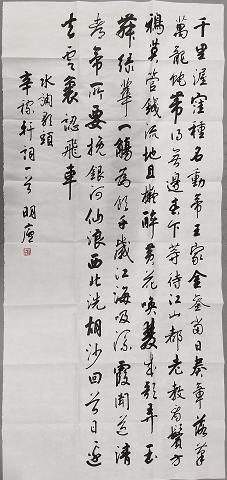 千里渥洼種名動帝王家金鑾當日奏章落筆
萬龍蛇帶得無邊春下等待江山都老教看鬢方
鴉莫管錢流地且擬醉黃花喚雙成歌弄玉
舞綠華一觴為飲千歲江海吸流霞聞道清
都帝所要挽銀河仙浪西北洗胡沙回首日邊
去雲裏認飛車
水調歌頭
辛稼軒詞一首 明廬